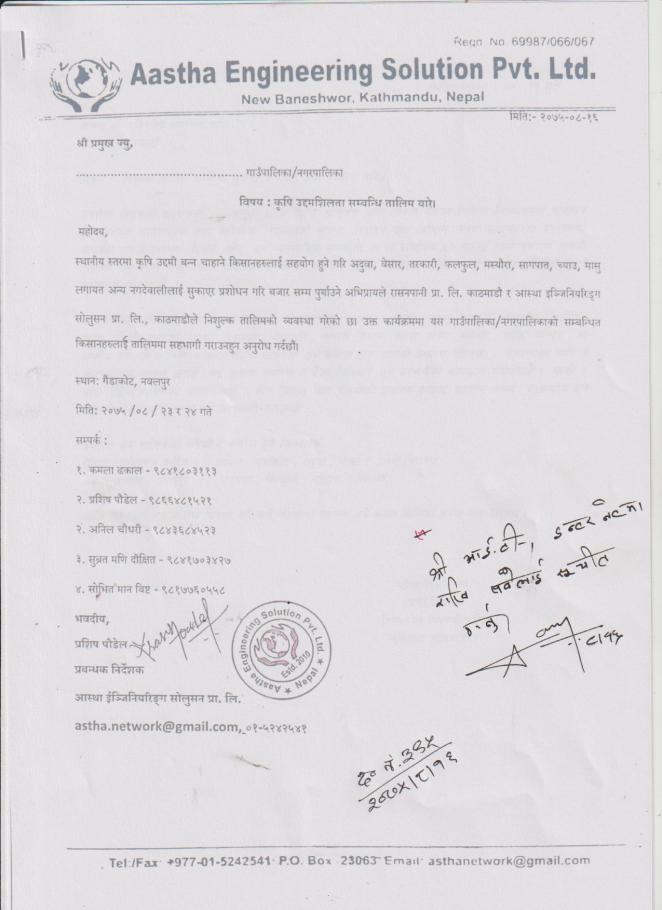 Regn. No. 69987/066/067
Aastha Engineering Solution Pvt. Ltd.
New Baneshwor, Kathmandu, Nepal
मिति:- २०७५-०८-१६
श्री प्रमुख ज्यु,
................................................ गाउँपालिका/नगरपालिका
विषय : कृषि उद्दमशिलता सम्बन्धि तालिम बारे।
महोदय,
स्थानीय स्तरमा कृषि उद्दमी बन्न चाहाने किसानहरुलाई सहयोग हुने गरि अदुवा, बेसार, तरकारी, फलफुल, मस्यौरा, सागपात, च्याउ, मासु
लगायत अन्य नगदेवालीलाई सुकाएर प्रशोधन गरि बजार सम्म पुर्याउने अभिप्रायले रासनपानी प्रा. लि. काठमाडौ र आस्था इञ्जिनियरिङ्ग
सोलुसन प्रा. लि., काठमाडौले निशुल्क तालिमको व्यवस्था गरेको छ। उक्त कार्यक्रममा यस गाउँपालिका/नगरपालिकाको सम्बन्धित
किसानहरुलाई तालिममा सहभागी गराउनहुन अनुरोध गर्दछौं।
स्थान: गैंडाकोट, नवलपुर
मिति: २०७५ /०८ / २३ र २४ गते
सम्पर्क :
१. कमला ढकाल - ९८४१८०३११३
२. प्रशिष पौडेल - ९८६६४८१५२१
२. अनिल चौधरी - ९८४३६८४५२३
३. सुव्रत मणि दीक्षित - ९८४१७०३४२७
४. सोभित मान विष्ट - ९८१७७६०५५८
भवदीय,
प्रशिष पौडेल
प्रवन्धक निर्देशक
आस्था ईञ्जिनियरिङ्ग सोलुसन प्रा. लि.
astha.network@gmail.com, ०१-५२४२५४१
Aastha Engineering Solution Pvt. Ltd.
Estd. 2010
Nepal
श्री आई.टी., इन्टरनेटमा
राखि सबैलाई सूचित
गर्ने।
८।१६
द० नं. ३३५
२०७५।८।१६
Tel:/Fax: +977-01-5242541 P.O. Box: 23063 Email: asthanetwork@gmail.com